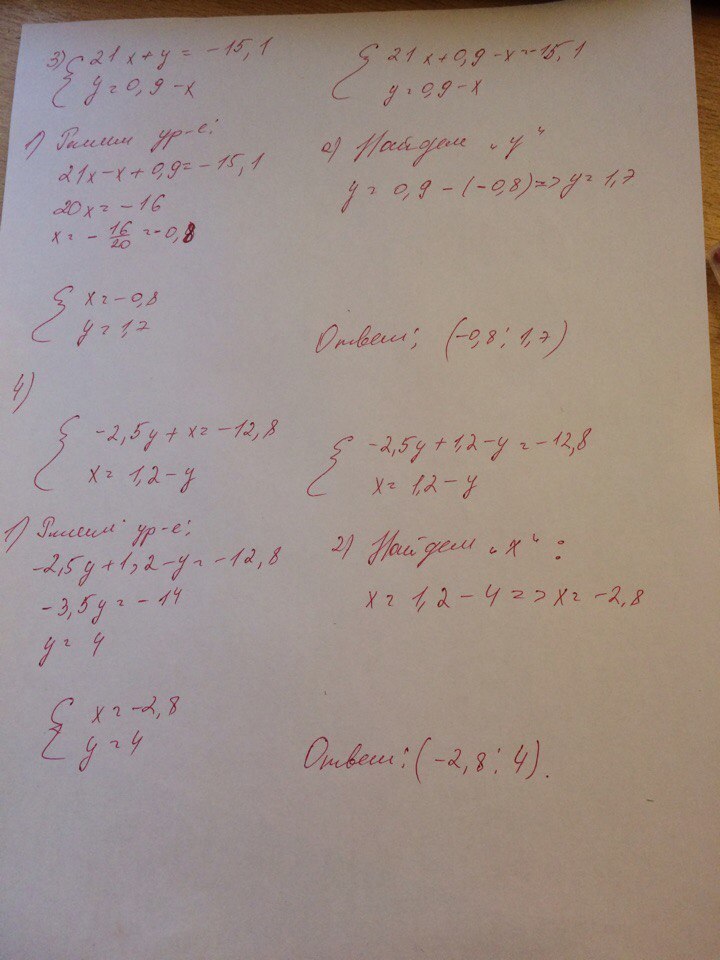 3) { 21x + y = -15,1
y = 0,9 - x
{ 21x + 0,9 - x = -15,1
y = 0,9 - x
1) Решим ур-е:
21x - x + 0,9 = -15,1
20x = -16
x = - 16/20 = -0,8
2) Найдем "y"
y = 0,9 - (-0,8) => y = 1,7
{ x = -0,8
y = 1,7
Ответ: (-0,8; 1,7)
4)
{ -2,5y + x = -12,8
x = 1,2 - y
{ -2,5y + 1,2 - y = -12,8
x = 1,2 - y
1) Решим ур-е:
-2,5y + 1,2 - y = -12,8
-3,5y = -14
y = 4
2) Найдем "x":
x = 1,2 - 4 => x = -2,8
{ x = -2,8
y = 4
Ответ: (-2,8; 4).